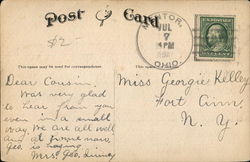 Post Card
$2
MEDIATOR,
JUL
7
4 PM
OHIO.
This space may be used for correspondence.
Dear Cousin,
Was very glad
to hear from you
even in a small
way. We are all well
and at home now,
Geo. is
Mrs. Geo.
Miss Georgie Kelley
Fort Ann
N. Y.